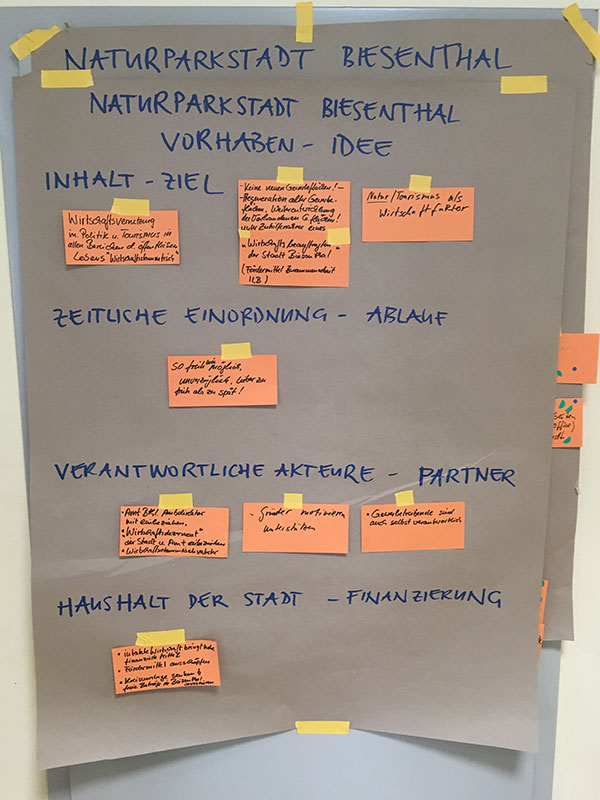 NATURPARKSTADT BIESENTHAL
NATURPARKSTADT BIESENTHAL
VORHABEN - IDEE
INHALT - ZIEL
Wirtschaftsvernetzung
in Politik u. Tourismus in
allen Bereichen d. öffentlichen
Lebens
- Keine neuen Gewerbeflächen! -
- Regeneration alter Gewerbe-
flächen, Weiterentwicklung
der Vorhandenen G.flächen!
unter Zuhilfenahme eines
"Wirtschaftsbeauftragten"
der Stadt Biesenthal
(Fördermittel Zusammenarbeit
ILB)
Natur/Tourismus als
Wirtschaftfaktor
ZEITLICHE EINORDNUNG - ABLAUF
so früh wie möglich,
unverzüglich, lieber zu
früh als zu spät!
VERANTWORTLICHE AKTEURE - PARTNER
• Amt
mit einbeziehen.
• "Wirtschaftsdezernent"
der Stadt u. Amt einbeziehen
•
- Gründer motivieren
unterstützen
• Gewerbetreibende sind
auch selbst verantwortlich
HAUSHALT DER STADT - FINANZIERUNG
• Wirtschaft bringt
finanzielle Mittel
• Fördermittel ausschöpfen
• Kreisumlage senken &
freie Beträge in Biesenthal